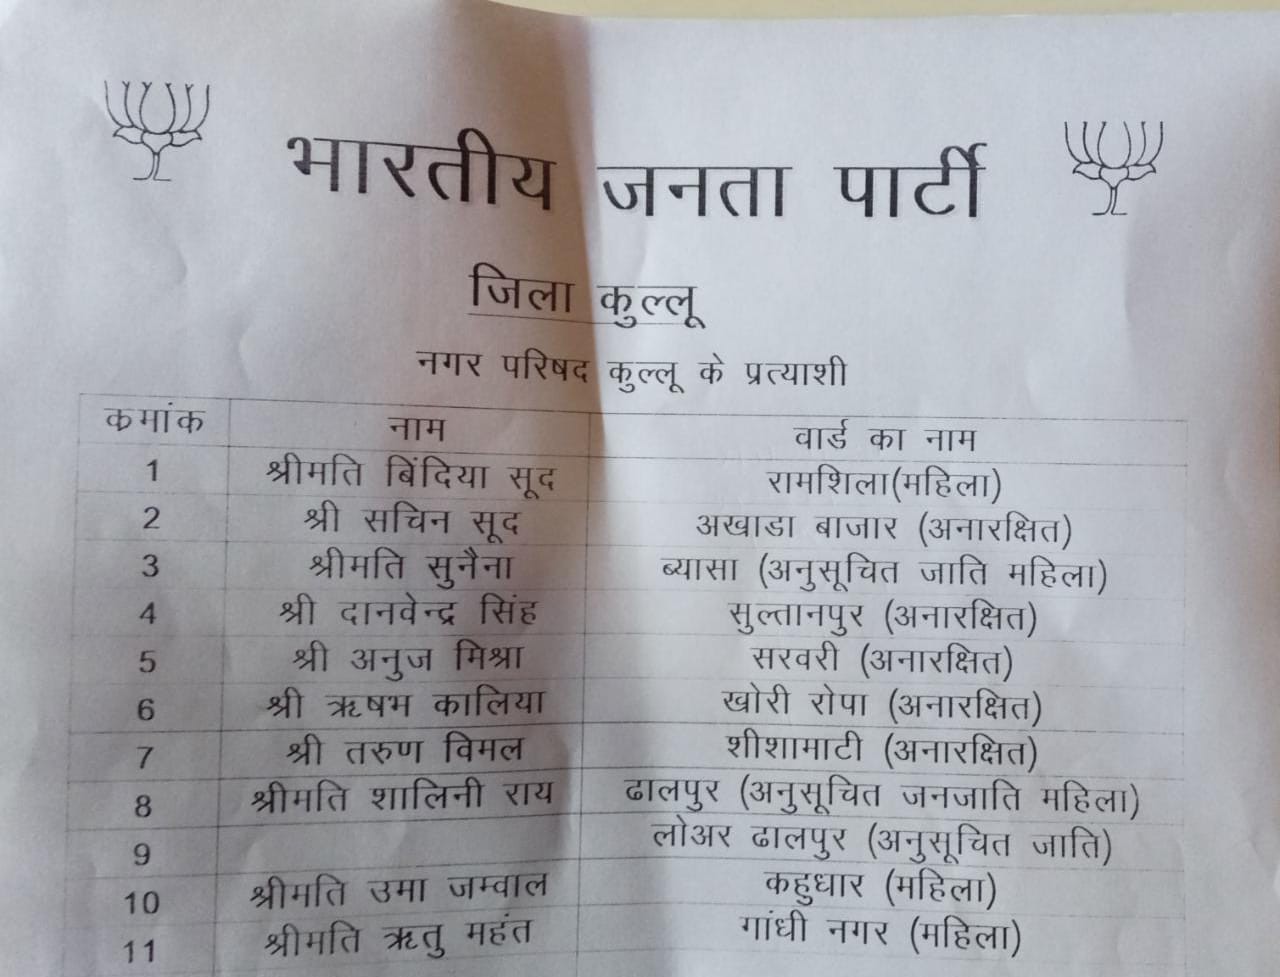 भारतीय जनता पार्टी
जिला कुल्लू
नगर परिषद कुल्लू के प्रत्याशी
कमांक नाम वार्ड का नाम
1 श्रीमति बिंदिया सूद रामशिला(महिला)
2 श्री सचिन सूद अखाडा बाजार (अनारक्षित)
3 श्रीमति सुनैना ब्यासा (अनुसूचित जाति महिला)
4 श्री दानवेन्द्र सिंह सुल्तानपुर (अनारक्षित)
5 श्री अनुज मिश्रा सरवरी (अनारक्षित)
6 श्री ऋषभ कालिया खोरी रोपा (अनारक्षित)
7 श्री तरुण विमल शीशामाटी (अनारक्षित)
8 श्रीमति शालिनी राय ढालपुर (अनुसूचित जनजाति महिला)
9 लोअर ढालपुर (अनुसूचित जाति)
10 श्रीमति उमा जम्वाल कहुधार (महिला)
11 श्रीमति ऋतु महंत गांधी नगर (महिला)